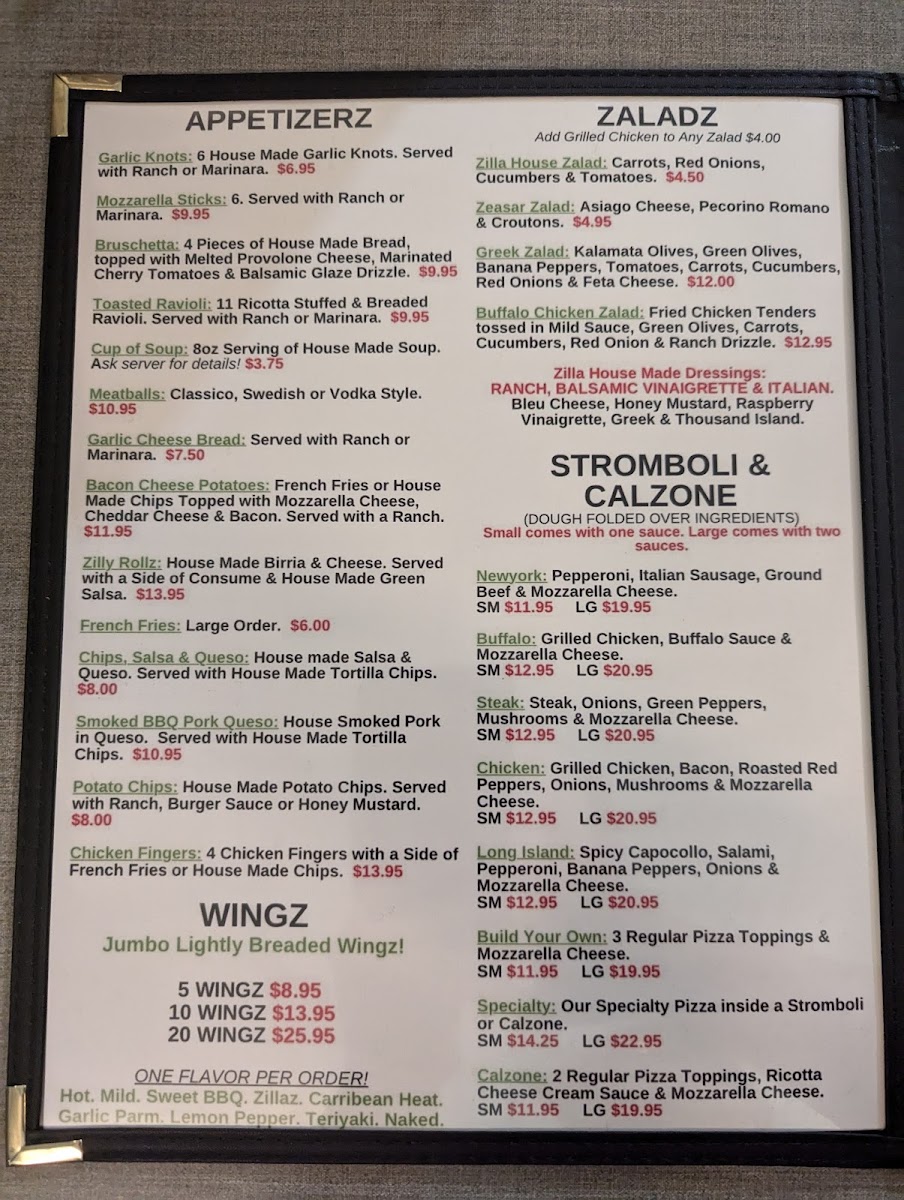 APPETIZERZ
Garlic Knots: 6 House Made Garlic Knots. Served
with Ranch or Marinara. $6.95
Mozzarella Sticks: 6. Served with Ranch or
Marinara. $9.95
Bruschetta: 4 Pieces of House Made Bread,
topped with Melted Provolone Cheese, Marinated
Cherry Tomatoes & Balsamic Glaze Drizzle. $9.95
Toasted Ravioli: 11 Ricotta Stuffed & Breaded
Ravioli. Served with Ranch or Marinara. $9.95
Cup of Soup: 8oz Serving of House Made Soup.
Ask server for details! $3.75
Meatballs: Classico, Swedish or Vodka Style.
$10.95
Garlic Cheese Bread: Served with Ranch or
Marinara. $7.50
Bacon Cheese Potatoes: French Fries or House
Made Chips Topped with Mozzarella Cheese,
Cheddar Cheese & Bacon. Served with a Ranch.
$11.95
Zilly Rollz: House Made Birria & Cheese. Served
with a Side of Consume & House Made Green
Salsa. $13.95
French Fries: Large Order. $6.00
Chips, Salsa & Queso: House made Salsa &
Queso. Served with House Made Tortilla Chips.
$8.00
Smoked BBQ Pork Queso: House Smoked Pork
in Queso. Served with House Made Tortilla
Chips. $10.95
Potato Chips: House Made Potato Chips. Served
with Ranch, Burger Sauce or Honey Mustard.
$8.00
Chicken Fingers: 4 Chicken Fingers with a Side of
French Fries or House Made Chips. $13.95
WINGZ
Jumbo Lightly Breaded Wingz!
5 WINGZ $8.95
10 WINGZ $13.95
20 WINGZ $25.95
ONE FLAVOR PER ORDER!
Hot. Mild. Sweet BBQ. Zillaz. Carribean Heat.
Garlic Parm. Lemon Pepper. Teriyaki. Naked.
ZALADZ
Add Grilled Chicken to Any Zalad $4.00
Zilla House Zalad: Carrots, Red Onions,
Cucumbers & Tomatoes. $4.50
Zeasar Zalad: Asiago Cheese, Pecorino Romano
& Croutons. $4.95
Greek Zalad: Kalamata Olives, Green Olives,
Banana Peppers, Tomatoes, Carrots, Cucumbers,
Red Onions & Feta Cheese. $12.00
Buffalo Chicken Zalad: Fried Chicken Tenders
tossed in Mild Sauce, Green Olives, Carrots,
Cucumbers, Red Onion & Ranch Drizzle. $12.95
Zilla House Made Dressings:
RANCH, BALSAMIC VINAIGRETTE & ITALIAN.
Bleu Cheese, Honey Mustard, Raspberry
Vinaigrette, Greek & Thousand Island.
STROMBOLI &
CALZONE
(DOUGH FOLDED OVER INGREDIENTS)
Small comes with one sauce. Large comes with two
sauces.
Newyork: Pepperoni, Italian Sausage, Ground
Beef & Mozzarella Cheese.
SM $11.95 LG $19.95
Buffalo: Grilled Chicken, Buffalo Sauce &
Mozzarella Cheese.
SM $12.95 LG $20.95
Steak: Steak, Onions, Green Peppers,
Mushrooms & Mozzarella Cheese.
SM $12.95 LG $20.95
Chicken: Grilled Chicken, Bacon, Roasted Red
Peppers, Onions, Mushrooms & Mozzarella
Cheese.
SM $12.95 LG $20.95
Long Island: Spicy Capocollo, Salami,
Pepperoni, Banana Peppers, Onions &
Mozzarella Cheese.
SM $12.95 LG $20.95
Build Your Own: 3 Regular Pizza Toppings &
Mozzarella Cheese.
SM $11.95 LG $19.95
Specialty: Our Specialty Pizza inside a Stromboli
or Calzone.
SM $14.25 LG $22.95
Calzone: 2 Regular Pizza Toppings, Ricotta
Cheese Cream Sauce & Mozzarella Cheese.
SM $11.95 LG $19.95